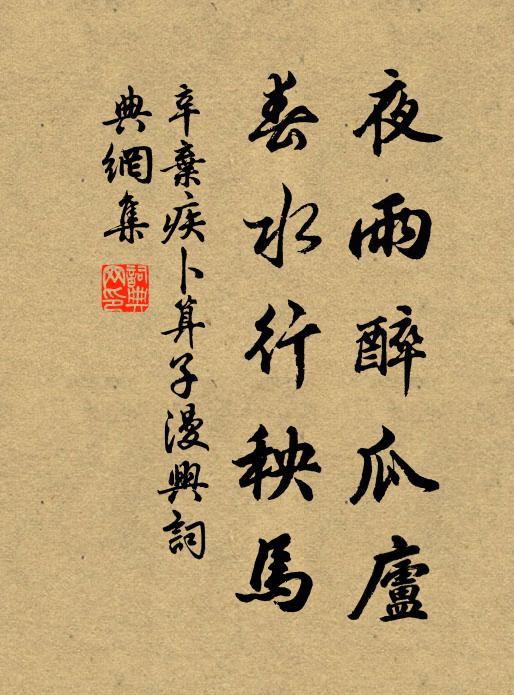 夜雨醉瓜廬
春水行秧馬
辛棄疾卜算子漫興詞
典網集
詞典
网印